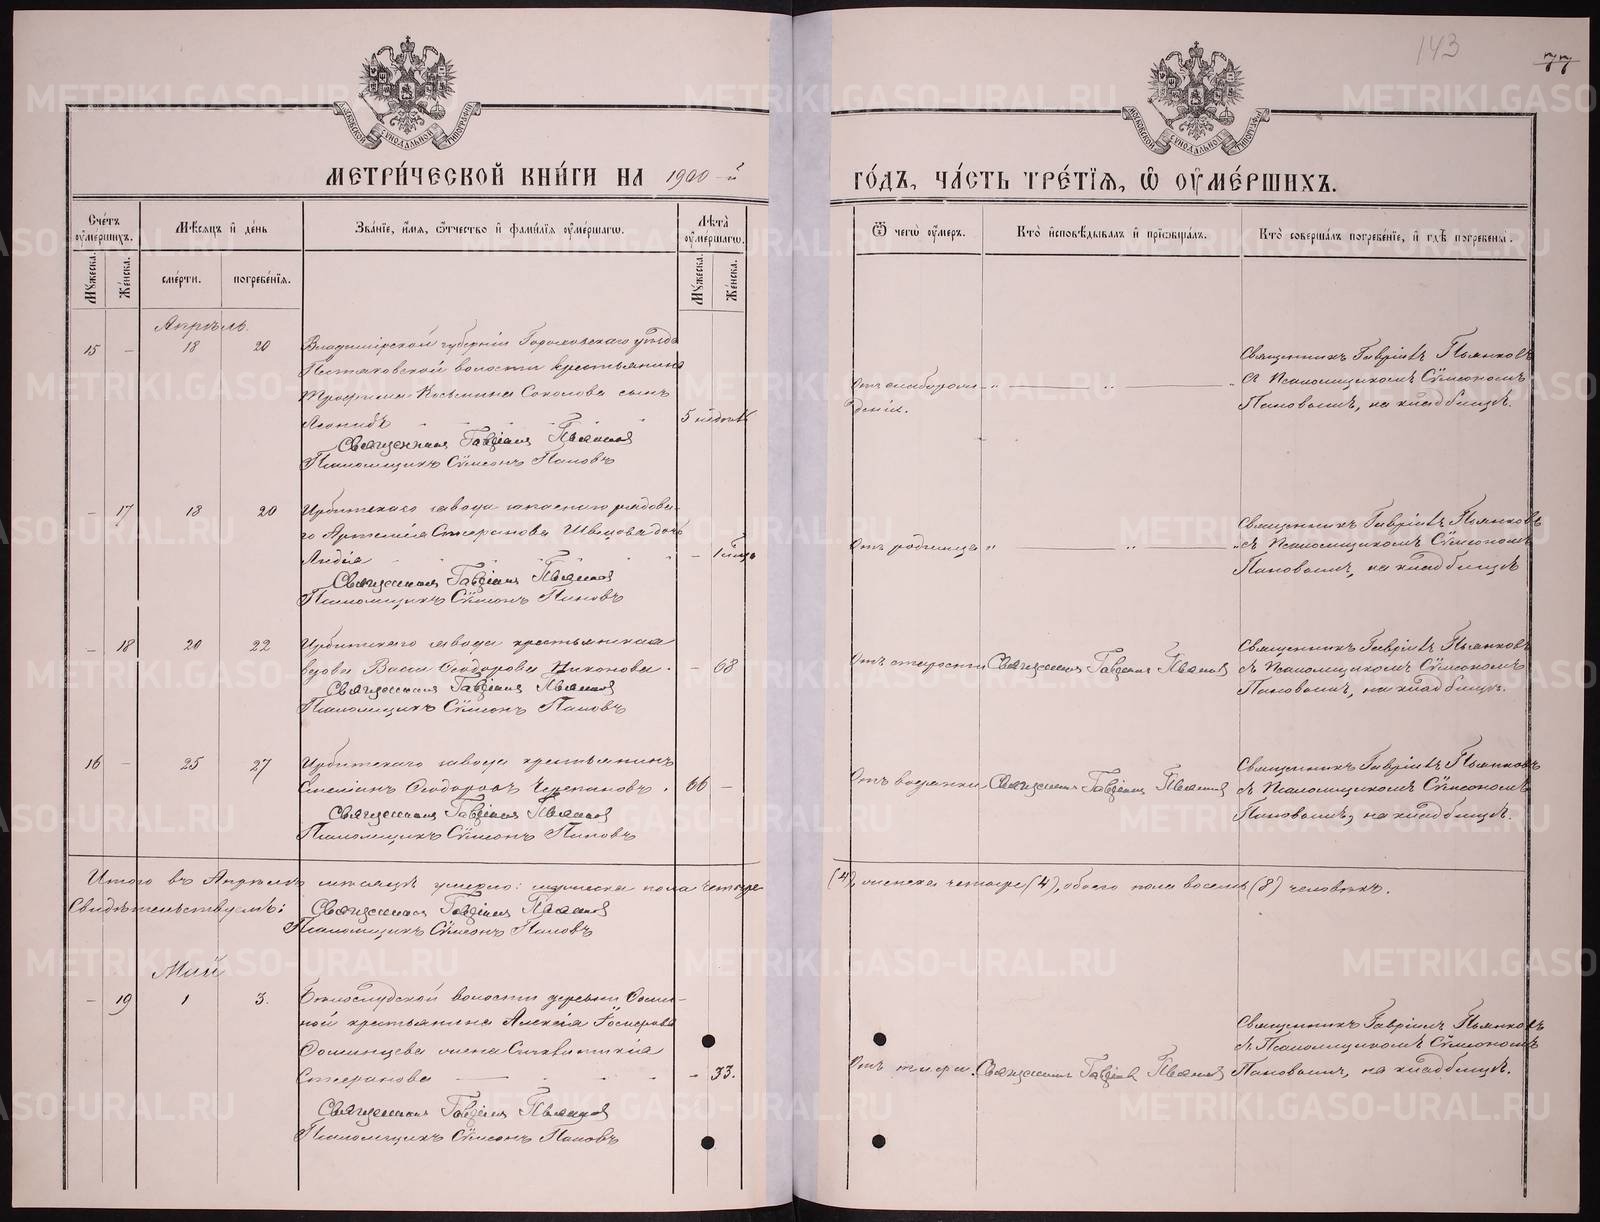 143
77
МОСКОВСКОЙ СѴНОДАЛЬНОЙ ТИПОГРАФІИ
МОСКОВСКОЙ СѴНОДАЛЬНОЙ ТИПОГРАФІИ
МЕТРИ́ЧЕСКОЙ КНИ́ГИ НА 1900-й
ГО́ДЪ, ЧА́СТЬ ТРЕ́ТІѦ, Ѽ ОУ҆МЕ́РШИХЪ.
Сче́тъ оу҆ме́ршихъ.
Мѣ́сѧцъ и҆ де́нь
Зва́нїе, и҆́мѧ, ѻ҆́тчество и҆ фами́лїѧ оу҆ме́ршагѡ.
Лѣ́та оу҆ме́ршагѡ.
Ѿ чегѡ̀ оу҆́меръ.
Кто̀ и҆сповѣ́дывалъ и҆ прїѡбща́лъ.
Кто̀ соверша́лъ погребе́нїе, и҆ гдѣ̀ погребены̀.
Мꙋ́жеска. Же́нска.
сме́рти. погребе́нїѧ.
Мꙋ́жеска. Же́нска.
Апрѣль.
15 - 18 20
Владимірской губерніи Гороховскаго уѣзда
Пестяковской волости крестьянина
Трофима Козьмина Соколова сынъ
Леонидъ
5 недѣль
Священникъ Гавріилъ Пьянков
Псаломщикъ Сѵмеонъ Поповъ
Отъ слаборож-
денія.
Священникъ Гавріилъ Пьянковъ
съ Псаломщикомъ Сѵмеономъ
Поповымъ, на кладбищѣ.
- 17 18 20
Ирбитскаго завода запаснаго рядова-
го Артемія Стефанова Швецова дочь
Лидія
- 1 года
Священникъ Гавріилъ Пьянков
Псаломщикъ Сѵмеонъ Поповъ
Отъ родимца
Священникъ Гавріилъ Пьянковъ
съ Псаломщикомъ Сѵмеономъ
Поповымъ, на кладбищѣ
- 18 20 22
Ирбитскаго завода крестьянская
вдова Васса Ѳеодорова Никонова.
- 68
Священникъ Гавріилъ Пьянков
Псаломщикъ Сѵмеонъ Поповъ
Отъ старости
Священникъ Гавріилъ Пьянков
Священникъ Гавріилъ Пьянковъ
съ Псаломщикомъ Сѵмеономъ
Поповымъ, на кладбищѣ.
16 - 25 27
Ирбитскаго завода крестьянинъ
Ѳеодоровъ Черепановъ.
66 -
Священникъ Гавріилъ Пьянков
Псаломщикъ Сѵмеонъ Поповъ
Отъ водянки
Священникъ Гавріилъ Пьянков
Священникъ Гавріилъ Пьянковъ
съ Псаломщикомъ Сѵмеономъ
Поповымъ, на кладбищѣ.
Итого въ Апрѣлѣ мѣсяцѣ умерло: мужеска пола четыре
(4), женска четыре (4), обоего пола восемь (8) человѣкъ.
Свидѣтельствуемъ: Священникъ Гавріилъ Пьянков
Псаломщикъ Сѵмеонъ Поповъ
Май
- 19 1 3.
Бѣлослудской волости деревни Соми-
ной крестьянина Алексія
Соминцева жена Сигклитикія
Стефанова
- 33.
Священникъ Гавріилъ Пьянков
Псаломщикъ Сѵмеонъ Поповъ
Отъ тифа.
Священникъ Гавріилъ Пьянков
Священникъ Гавріилъ Пьянковъ
съ Псаломщикомъ Сѵмеономъ
Поповымъ, на кладбищѣ.
METRIKI.GASO-URAL.RU